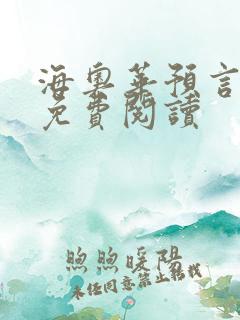 海奧華預言
免費閱讀
煦煦暖陽
未经同意禁止转载